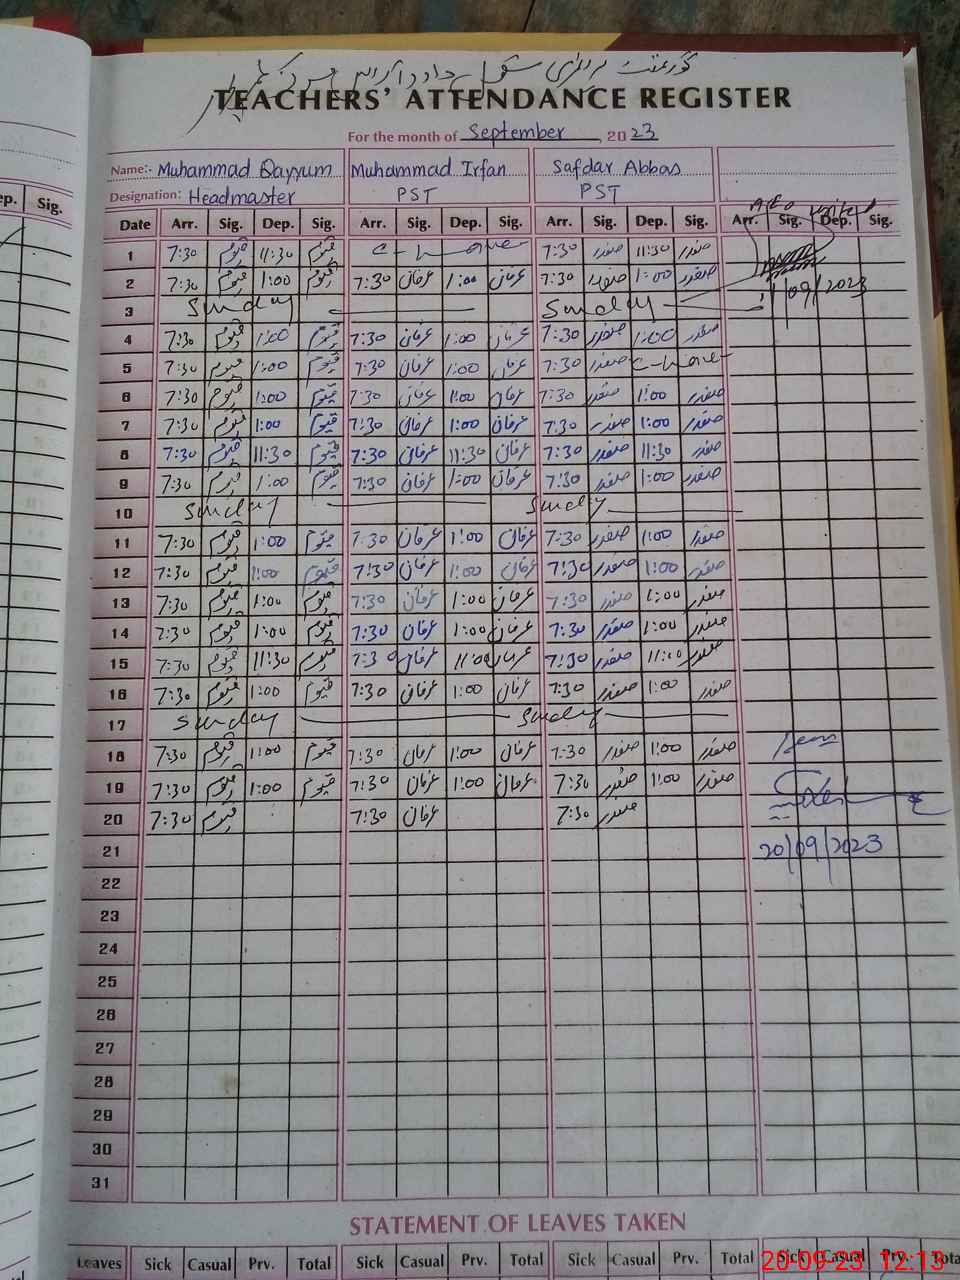 گورنمنٹ پرائمری سکول
TEACHERS' ATTENDANCE REGISTER
For the month of September, 2023
Name:- Muhammad Qayyum Muhammad Irfan Safdar Abbas
Designation: Headmaster PST PST
ep. Sig.
Date Arr. Sig. Dep. Sig. Arr. Sig. Dep. Sig. Arr. Sig. Dep. Sig. Arr. Sig. Dep. Sig.
1 7:30 قیوم 11:30 قیوم C-Leave 7:30 صفدر 11:30 صفدر
2 7:30 قیوم 1:00 قیوم 7:30 عرفان 1:00 عرفان 7:30 صفدر 1:00 صفدر
3 Sunday Sunday 1/09/2023
4 7:30 قیوم 1:00 قیوم 7:30 عرفان 1:00 عرفان 7:30 صفدر 1:00 صفدر
5 7:30 قیوم 1:00 قیوم 7:30 عرفان 1:00 عرفان 7:30 صفدر C-Leave
6 7:30 قیوم 1:00 قیوم 7:30 عرفان 1:00 عرفان 7:30 صفدر 1:00 صفدر
7 7:30 قیوم 1:00 قیوم 7:30 عرفان 1:00 عرفان 7:30 صفدر 1:00 صفدر
8 7:30 قیوم 11:30 قیوم 7:30 عرفان 11:30 عرفان 7:30 صفدر 11:30 صفدر
9 7:30 قیوم 1:00 قیوم 7:30 عرفان 1:00 عرفان 7:30 صفدر 1:00 صفدر
10 Sunday Sunday
11 7:30 قیوم 1:00 قیوم 7:30 عرفان 1:00 عرفان 7:30 صفدر 1:00 صفدر
12 7:30 قیوم 1:00 قیوم 7:30 عرفان 1:00 عرفان 7:30 صفدر 1:00 صفدر
13 7:30 قیوم 1:00 قیوم 7:30 عرفان 1:00 عرفان 7:30 صفدر 1:00 صفدر
14 7:30 قیوم 1:00 قیوم 7:30 عرفان 1:00 عرفان 7:30 صفدر 1:00 صفدر
15 7:30 قیوم 11:30 قیوم 7:30 عرفان 11:00 عرفان 7:30 صفدر 11:00 صفدر
16 7:30 قیوم 1:00 قیوم 7:30 عرفان 1:00 عرفان 7:30 صفدر 1:00 صفدر
17 Sunday Sunday
18 7:30 قیوم 1:00 قیوم 7:30 عرفان 1:00 عرفان 7:30 صفدر 1:00 صفدر
19 7:30 قیوم 1:00 قیوم 7:30 عرفان 1:00 عرفان 7:30 صفدر 1:00 صفدر
20 7:30 قیوم 7:30 عرفان 7:30 صفدر
21 20/09/2023
22
23
24
25
26
27
28
29
30
31
STATEMENT OF LEAVES TAKEN
Leaves Sick Casual Prv. Total Sick Casual Prv. Total Sick Casual Prv. Total Sick Casual Prv. Tota
20-09-23 12:13